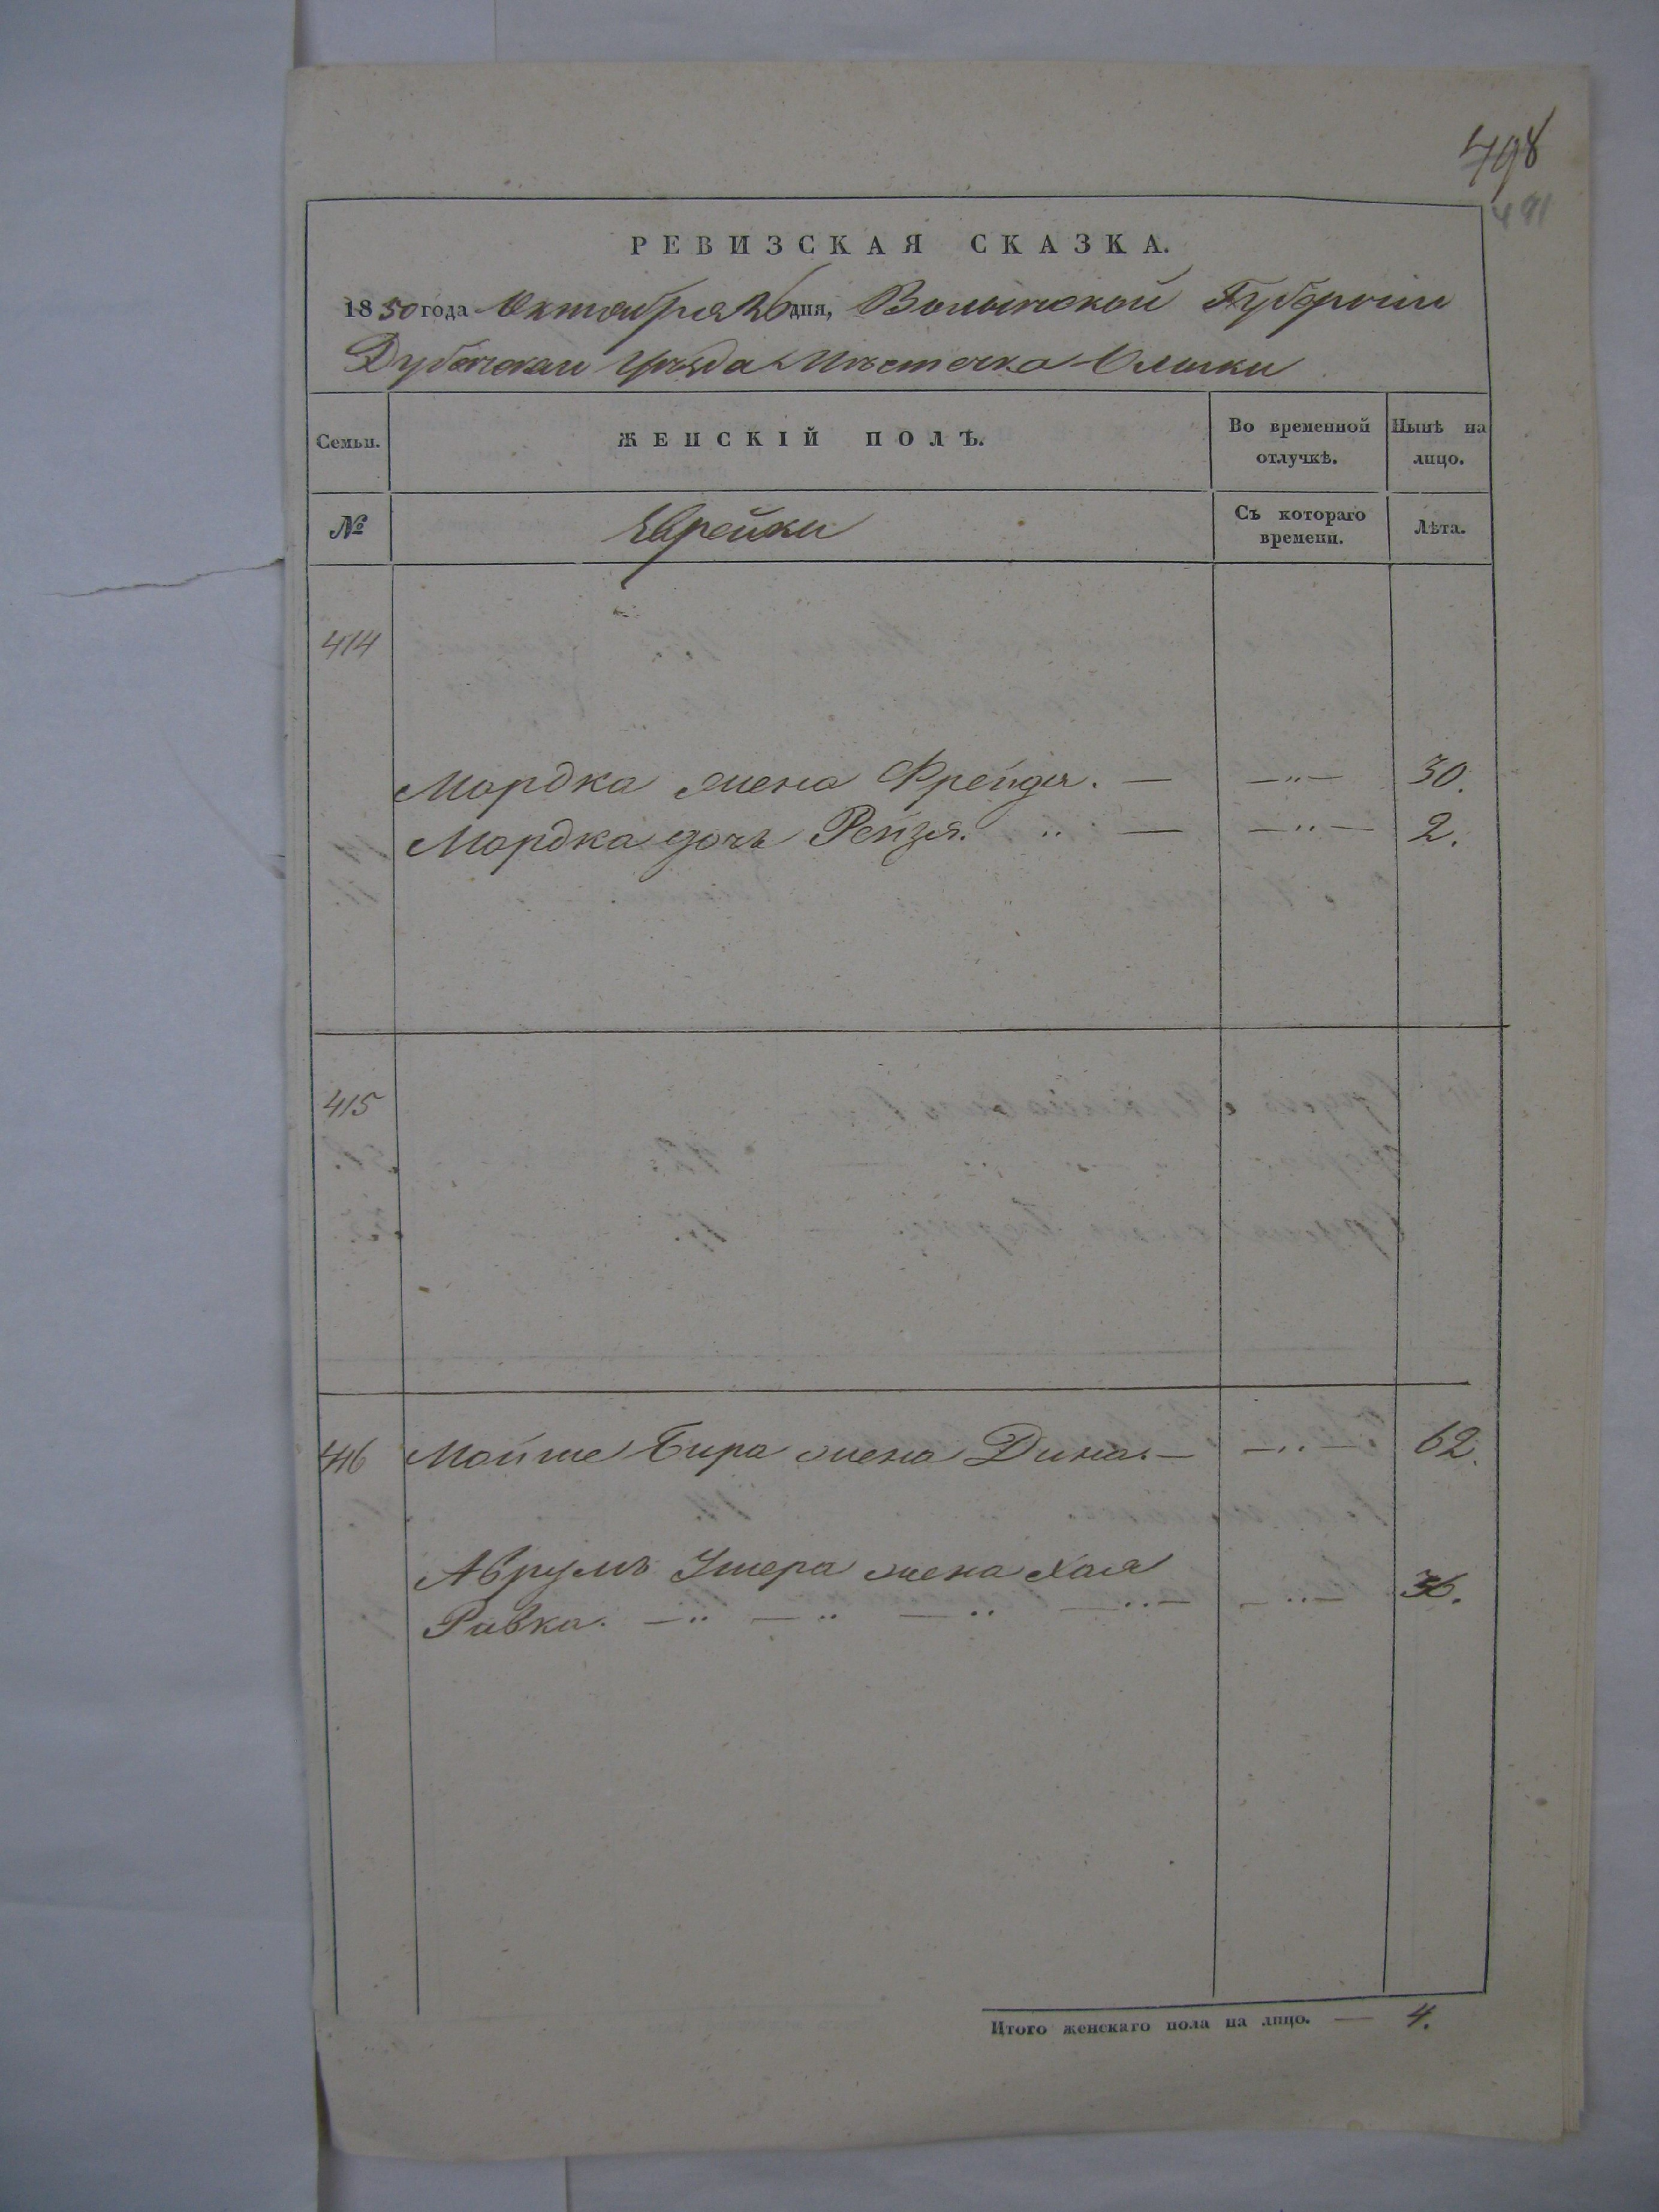 498
491
РЕВИЗСКАЯ СКАЗКА.
1850 года Октября 26 дня, Волынской Губернии
Дубенскаи Уѣзда Мѣстечка Олыки
Семьи. ЖЕНСКІЙ ПОЛЪ. Во временной отлучкѣ. Нынѣ на лицо.
№ Еврейки Съ котораго времени. Лѣта.
414
Мордка жена Фрейда. — —"— 30.
Мордка дочь Рейзя. " — —"— 2.
415
416 Мойше Бира жена Дина. — —"— 62.
Аврумъ Умера жена Хая
Ривка. —" —" —" —"— —"— 36.
Итого женскаго пола на лицо. — 4.